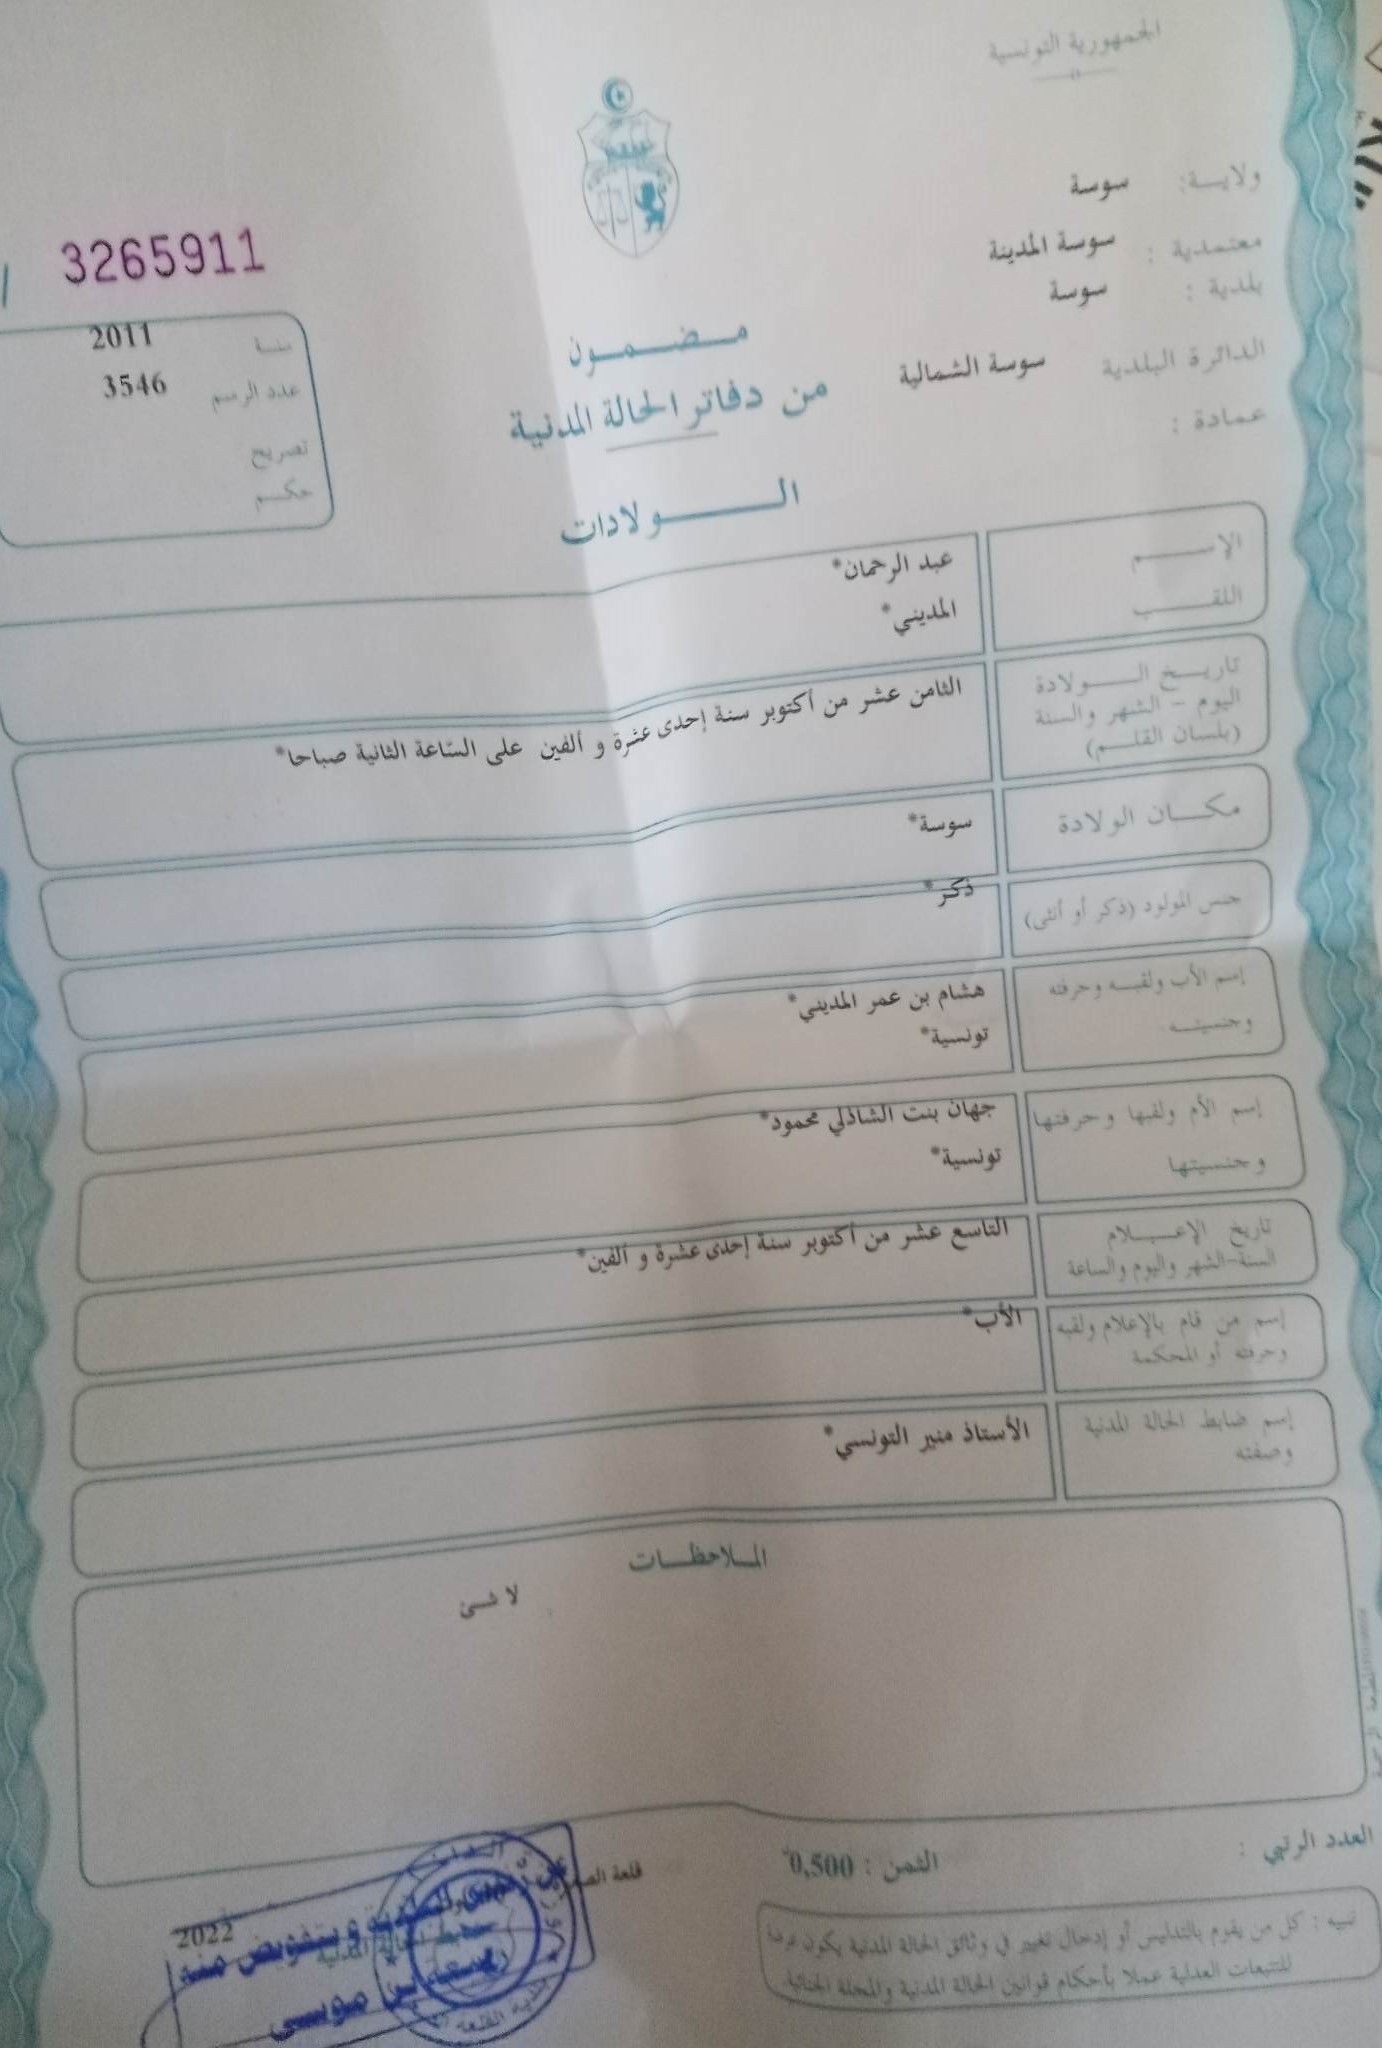 الجمهورية التونسية
ولاية: سوسة
معتمدية : سوسة المدينة
بلدية : سوسة
الدائرة البلدية سوسة الشمالية
عمادة :
3265911
سنة 2011
عدد الرسم 3546
تصريح
حكم
مضمون
من دفاتر الحالة المدنية
الولادات
الإسم عبد الرحمان*
اللقب المديني*
تاريخ الولادة
اليوم - الشهر والسنة
(بلسان القلم)
الثامن عشر من أكتوبر سنة إحدى عشرة و ألفين على السّاعة الثانية صباحا*
مكان الولادة سوسة*
جنس المولود (ذكر أو أنثى) ذكر*
إسم الأب ولقبه وحرفته هشام بن عمر المديني*
وجنسيته تونسية*
إسم الأم ولقبها وحرفتها جهان بنت الشاذلي محمود*
وجنسيتها تونسية*
تاريخ الإعلام
السنة-الشهر واليوم والساعة
التاسع عشر من أكتوبر سنة إحدى عشرة و ألفين*
إسم من قام بالإعلام ولقبه
وحرفته أو المحكمة
الأب*
إسم ضابط الحالة المدنية
وصفته
الأستاذ منير التونسي*
الملاحظات
لا شئ
العدد الرتبي :
الثمن : 0,500
تنبيه : كل من يقوم بالتدليس أو إدخال تغيير في وثائق الحالة المدنية يكون عرضة
للتتبعات العدلية عملا بأحكام قوانين الحالة المدنية والمجلة الجنائية.
قلعة
2022
وبتفويض منه
بن موسى